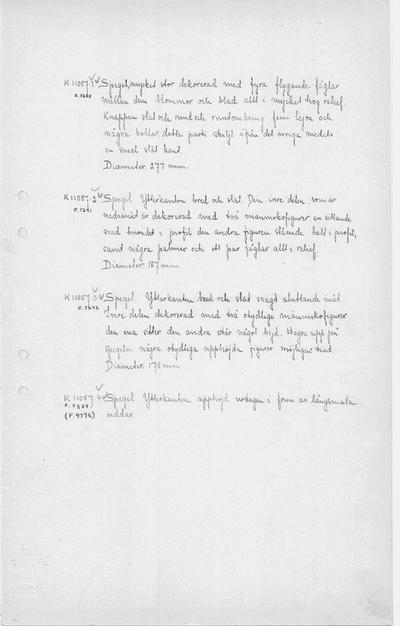 K 11057:1 Spegel, mycket stor dekorerad med fyra flygande fåglar
F. 7890 mellan dem blommor och blad allt i mycket hög relief.
Knappen slät och rund och rundomkring fem lejon och
några bollar, detta parti skiljt ifrån det övriga medels
en smal slät kant.
Diameter: 277 mm.
K 11057:2 Spegel. Ytterkanten bred och slät. Den inre delen som är
F. 7891 nedsänkt är dekorerad med två människofigurer en sittande
med huvudet i profil den andra figuren stående helt i profil,
samt några palmer och ett par fåglar allt i relief.
Diameter: 187 mm
K 11057:3 Spegel. Ytterkanten bred och slät svagt sluttande inåt
F. 7892 Inre delen dekorerad med två otydliga människofigurer
den ena sitter den andra står något böjd. Högre upp på
spegeln några otydliga upphöjda figurer möjligen träd.
Diameter: 178 mm
K 11057:4 Spegel Ytterkanten upphöjd i form av långsmala
F. 7894
(F. 9796) uddar